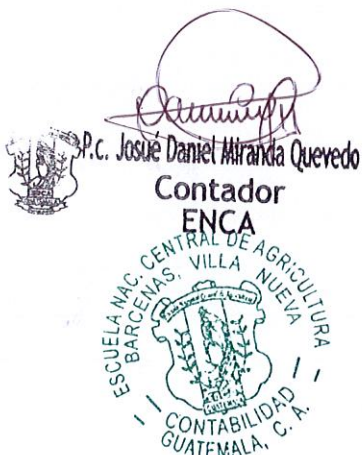 P.c. Josué Daniel Miranda Quevedo
Contador
ENCA
ESCUELA NAC. CENTRAL DE AGRICULTURA
BARCENAS, VILLA NUEVA
CONTABILIDAD
GUATEMALA, C. A.